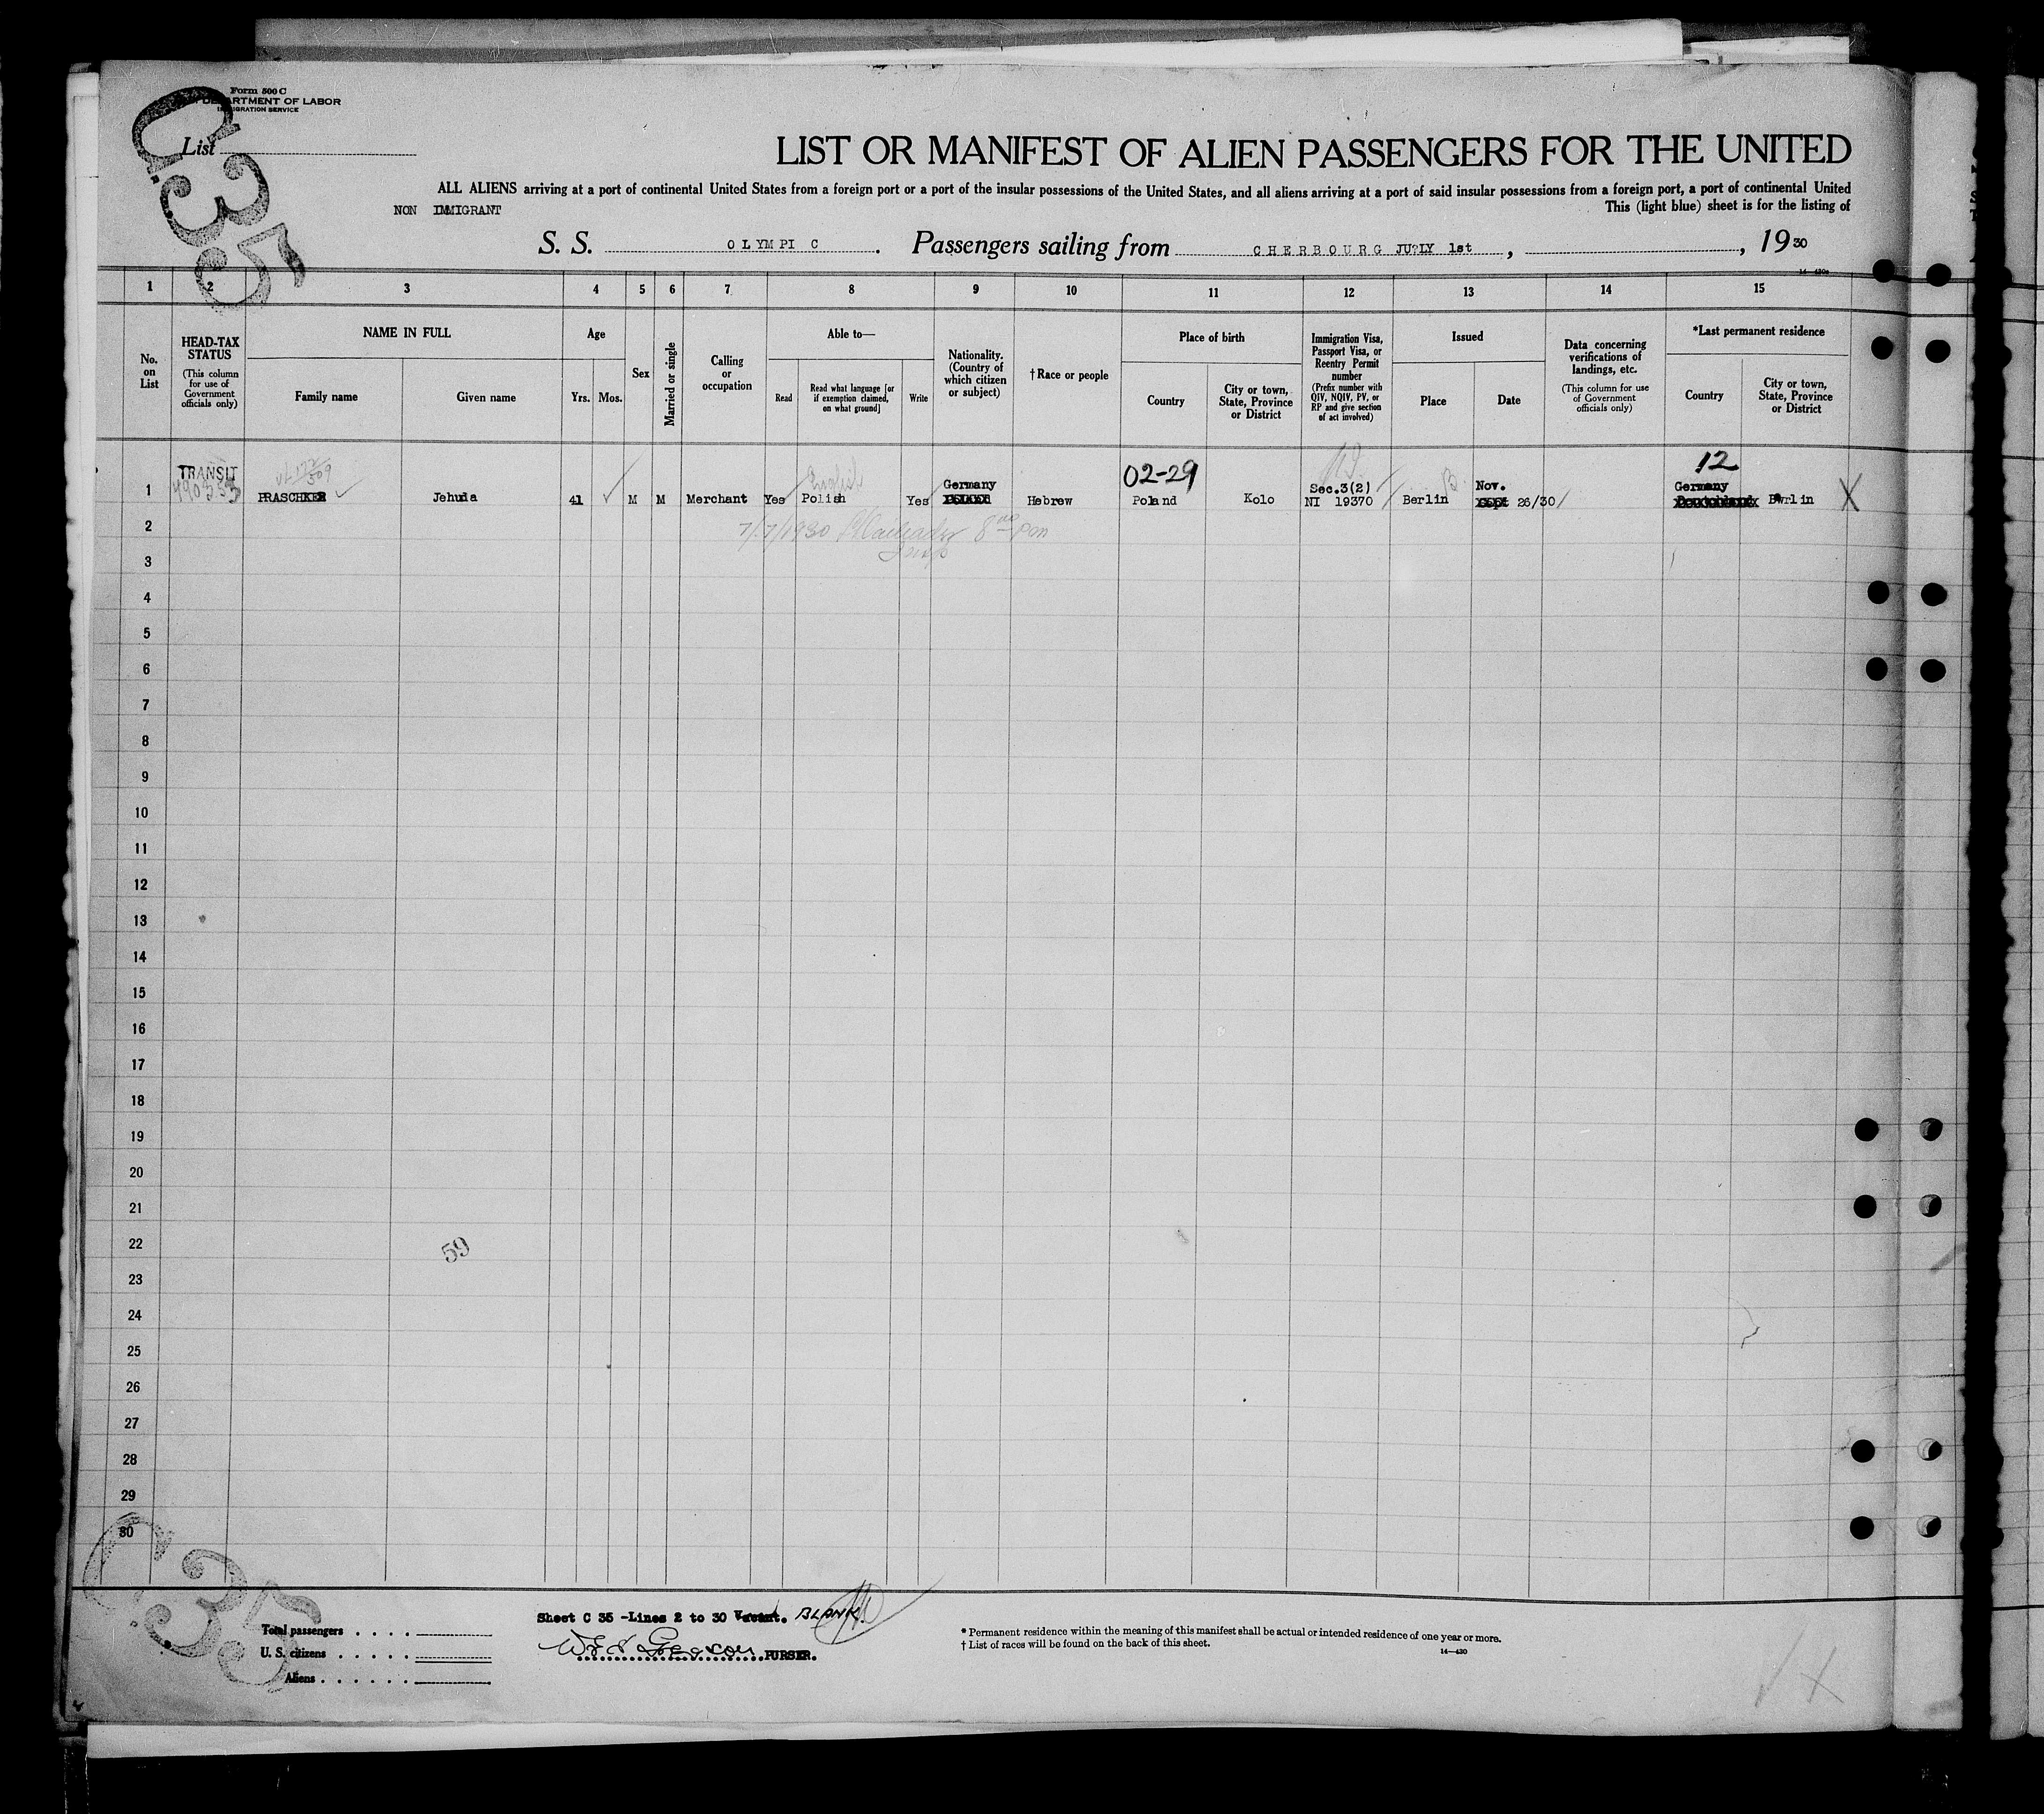 Form 500 C
DEPARTMENT OF LABOR
IMMIGRATION SERVICE
C.35
List
LIST OR MANIFEST OF ALIEN PASSENGERS FOR THE UNITED
ALL ALIENS arriving at a port of continental United States from a foreign port or a port of the insular possessions of the United States, and all aliens arriving at a port of said insular possessions from a foreign port, a port of continental United
NON IMMIGRANT
This (light blue) sheet is for the listing of
S. S. OLYMPIC. Passengers sailing from CHERBOURG JU?LY 1st, , 1930
1 2 3 4 5 6 7 8 9 10 11 12 13 14 15
No. on List
HEAD-TAX STATUS (This column for use of Government officials only)
NAME IN FULL
Family name
Given name
Age
Yrs.
Mos.
Sex
Married or single
Calling or occupation
Able to—
Read
Read what language [or if exemption claimed, on what ground]
Write
Nationality. (Country of which citizen or subject)
†Race or people
Place of birth
Country
City or town, State, Province or District
Immigration Visa, Passport Visa, or Reentry Permit number (Prefix number with QIV, NQIV, PV, or RP and give section of act involved)
Issued
Place
Date
Data concerning verifications of landings, etc. (This column for use of Government officials only)
*Last permanent residence
Country
City or town, State, Province or District
TRANSIT 02-29 12
English
Germany Sec.3(2) Nov. Germany
1 PRASCHKER Jehuda 41 M M Merchant Yes Polish Yes Hebrew Poland Kolo NI 19370 Berlin 26/30 Berlin X
7/7/1930 8 00 pm
2
3
4
5
6
7
8
9
10
11
12
13
14
15
16
17
18
19
20
21
22
59
23
24
25
26
27
28
29
30
C35
Sheet C 35 -Lines 2 to 30 BLANK.
Total passengers
U. S. citizens
Aliens
PURSER.
* Permanent residence within the meaning of this manifest shall be actual or intended residence of one year or more.
† List of races will be found on the back of this sheet.
14—430